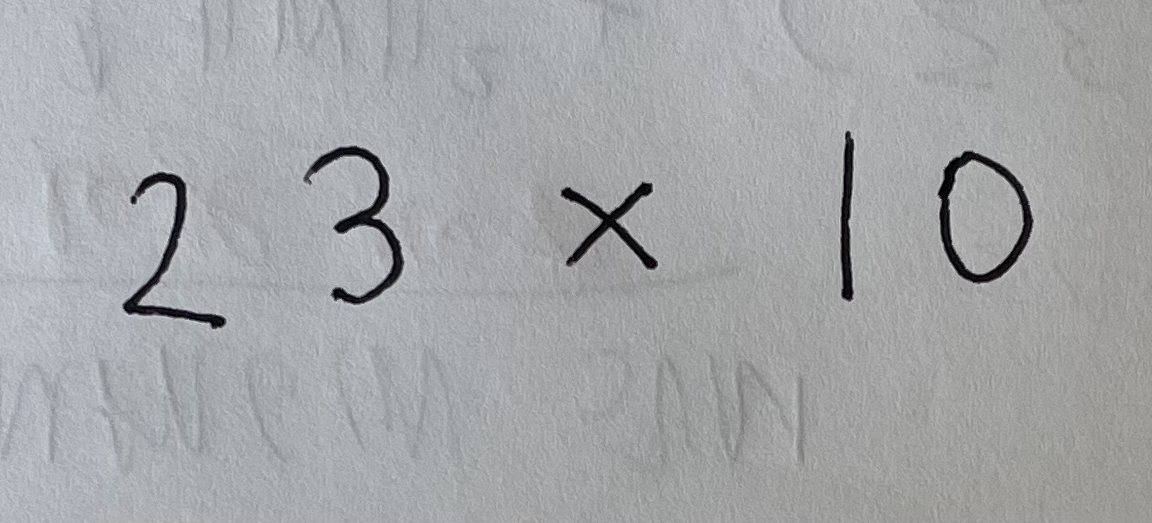 23 × 10